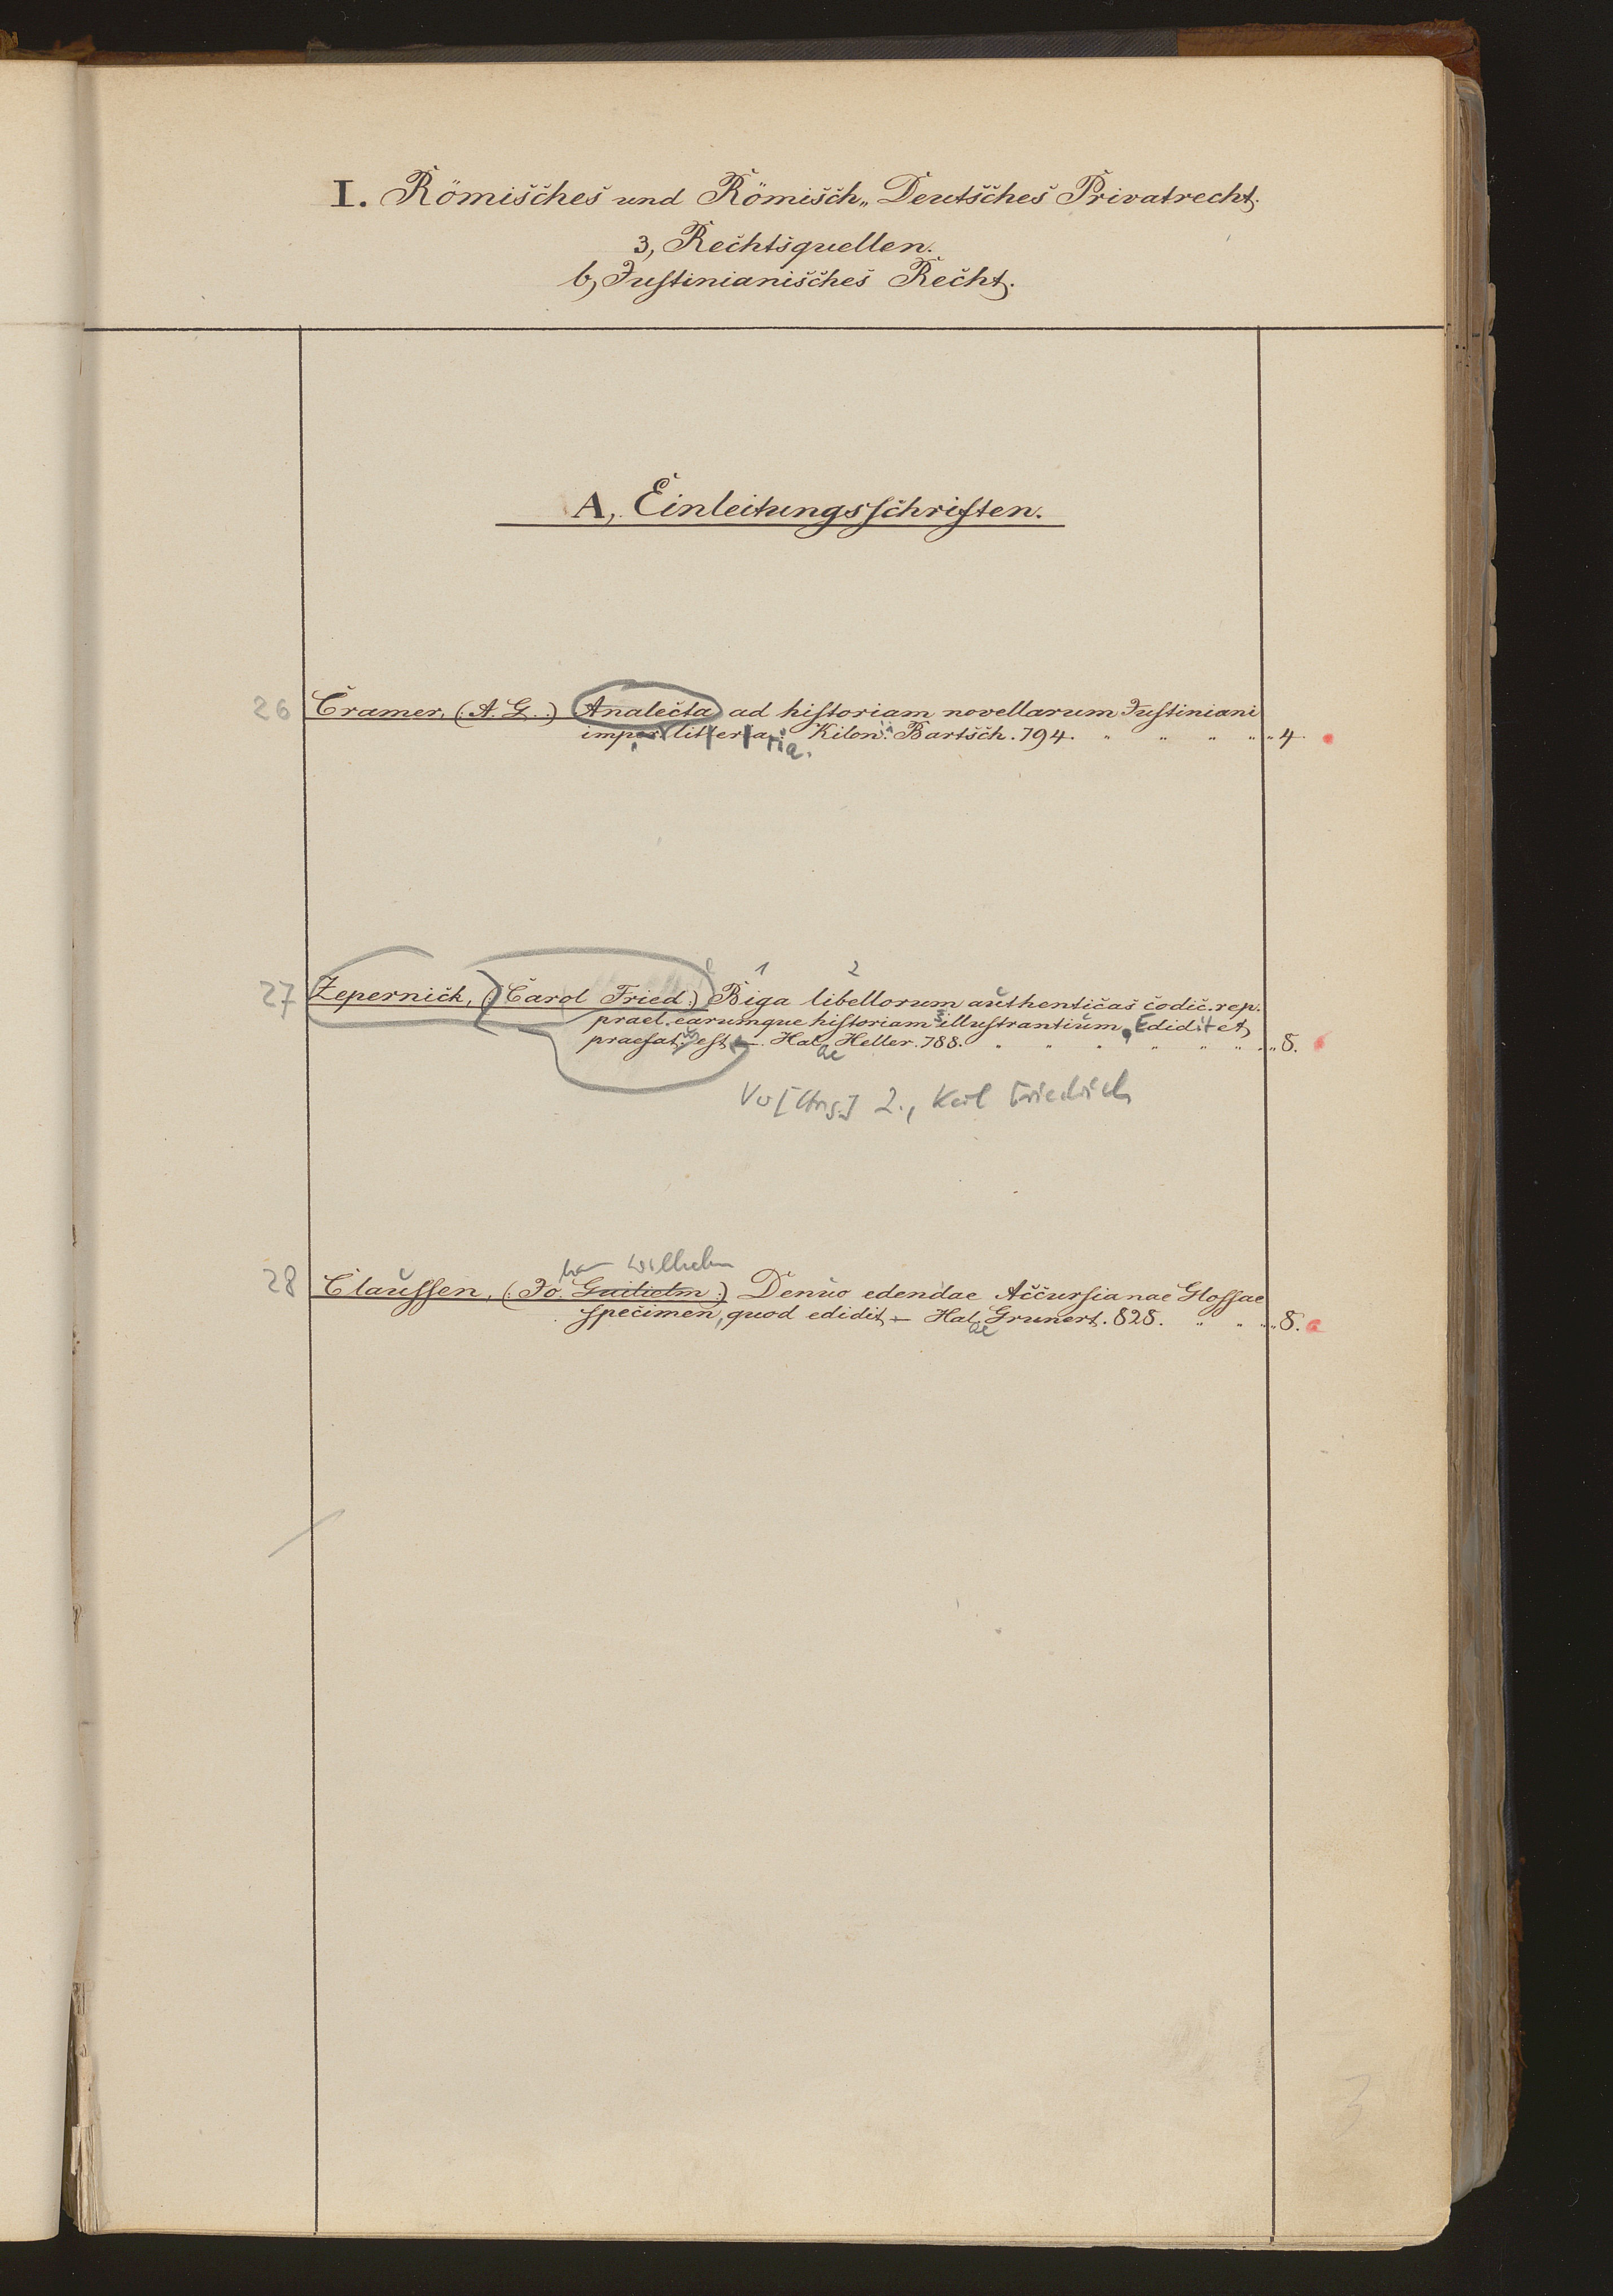 I. Römisches und Römisch„ Deutsches Privatrecht.
3, Rechtsquellen.
b, Justinianisches Recht.
A, Einleitungsschriften.
26 Cramer, (A. G..) Analecta ad historiam novellarum Justiniani
litteraria. Kilon. Bartsch. 794. " " " " " 4.
ria.
1 2
27 Zepernick, (: Carol Fried :) Biga libellorum authenticas codic. rep.
prael. earumque historiam illustrantium, Edidit et
praefat. est —. Hal. Heller. 788. " " " " " " " 8.
ae
[Hrsg.] Z., Karl Friedrich
Wilhelm
28 Claussen, (: Jo. Guilielm :) Denuo edendae Accursianae Glossae
specimen, quod edidit — Hal. Grunert. 828. " " " " 8. a
ae
3